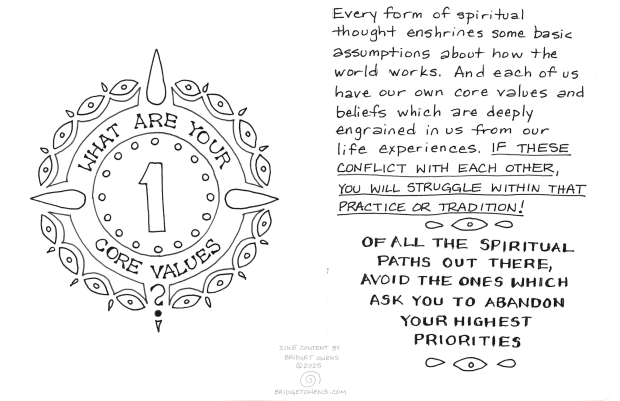 WHAT ARE YOUR
1
CORE VALUES
?
Every form of spiritual
thought enshrines some basic
assumptions about how the
world works. And each of us
have our own core values and
beliefs which are deeply
engrained in us from our
life experiences. IF THESE
CONFLICT WITH EACH OTHER,
YOU WILL STRUGGLE WITHIN THAT
PRACTICE OR TRADITION!
OF ALL THE SPIRITUAL
PATHS OUT THERE,
AVOID THE ONES WHICH
ASK YOU TO ABANDON
YOUR HIGHEST
PRIORITIES
ZINE CONTENT BY
BRIDGET OWENS
©2025
BRIDGETOWENS.COM